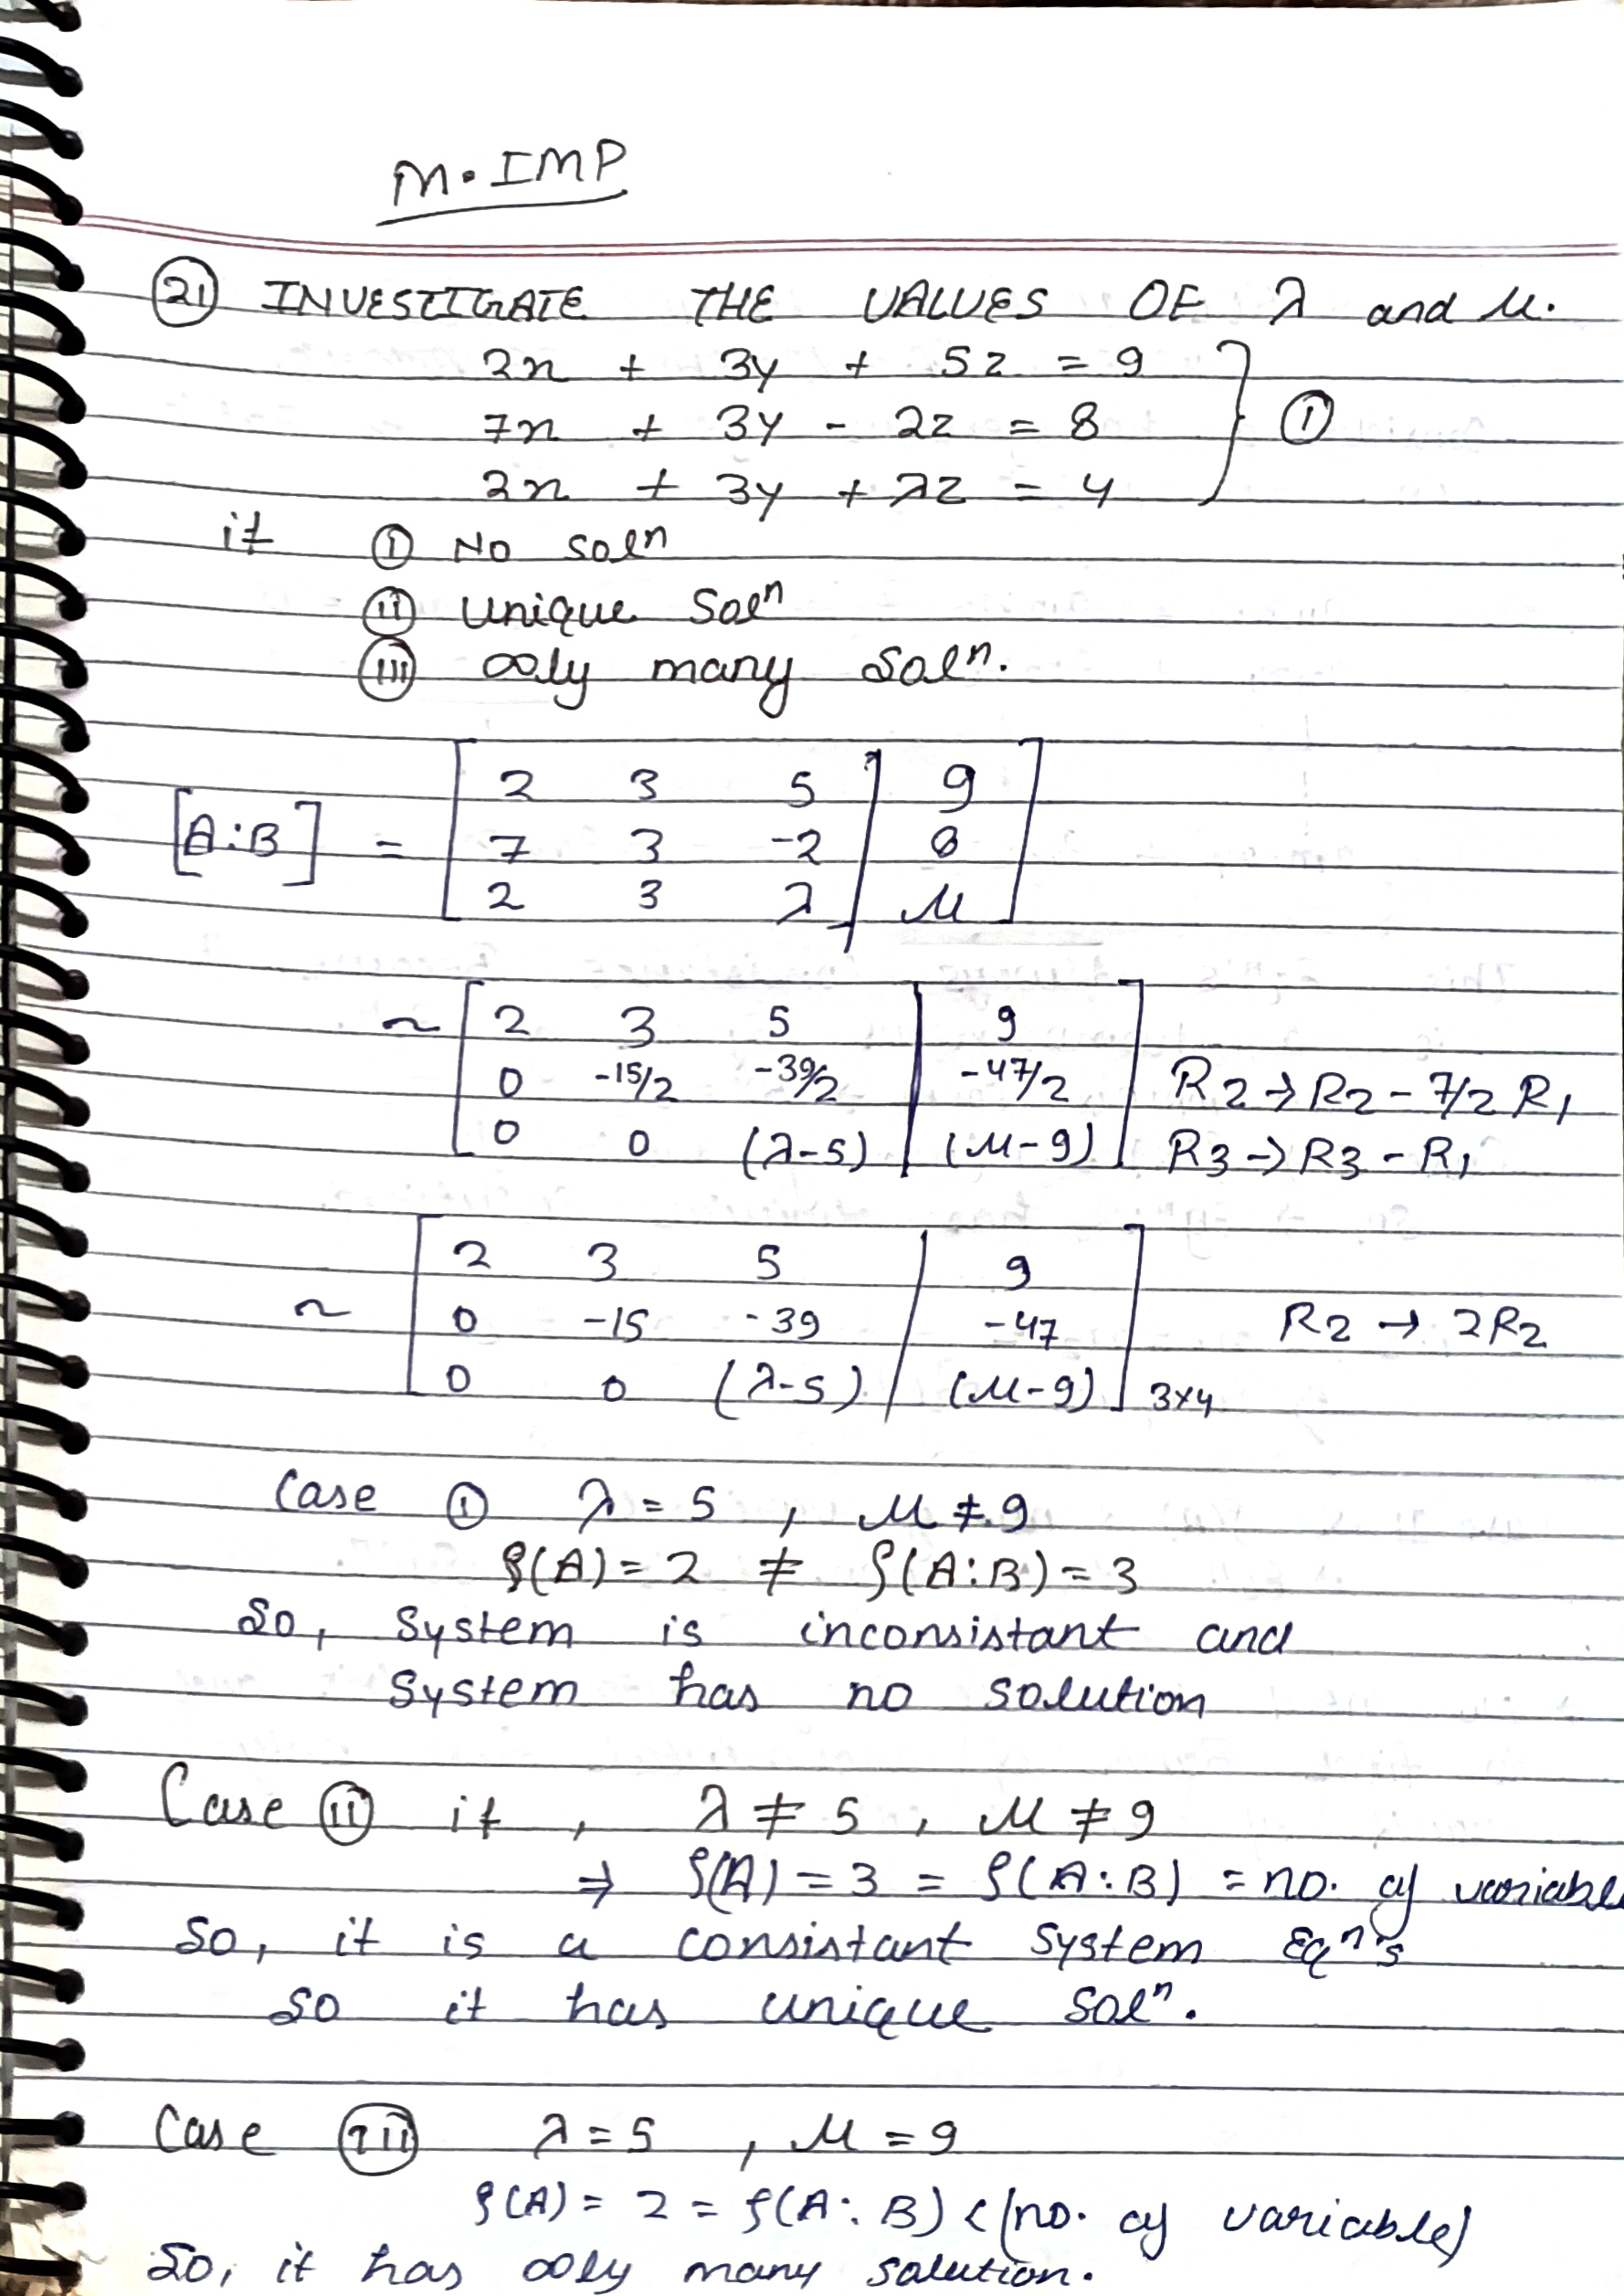 M.IMP
(21) INVESTIGATE THE VALUES OF λ and μ.
2x + 3y + 5z = 9
7x + 3y - 2z = 8
2x + 3y + λz = 4
} (1)
if (i) No solⁿ
(ii) Unique Solⁿ
(iii) ∞ly many Solⁿ.
[A:B] = [ 2 3 5 | 9 ]
7 3 -2 | 8
2 3 λ | μ
~ [ 2 3 5 | 9 ]
0 -15/2 -39/2 | -47/2 R2→R2-7/2 R1
0 0 (λ-5) | (μ-9) R3→R3-R1
~ [ 2 3 5 | 9 ]
0 -15 -39 | -47 R2 → 2R2
0 0 (λ-5) | (μ-9) 3x4
Case (i) λ = 5 , μ ≠ 9
ρ(A) = 2 ≠ ρ(A:B) = 3
So, System is inconsistant and
System has no solution
Case (ii) if , λ ≠ 5 , μ ≠ 9
⇒ ρ(A) = 3 = ρ(A:B) = no. of variable
So, it is a consistant System Eqⁿ's
So it has unique Solⁿ.
Case (iii) λ = 5 , μ = 9
ρ(A) = 2 = ρ(A:B) < (no. of variable)
So, it has ∞ly many solution.